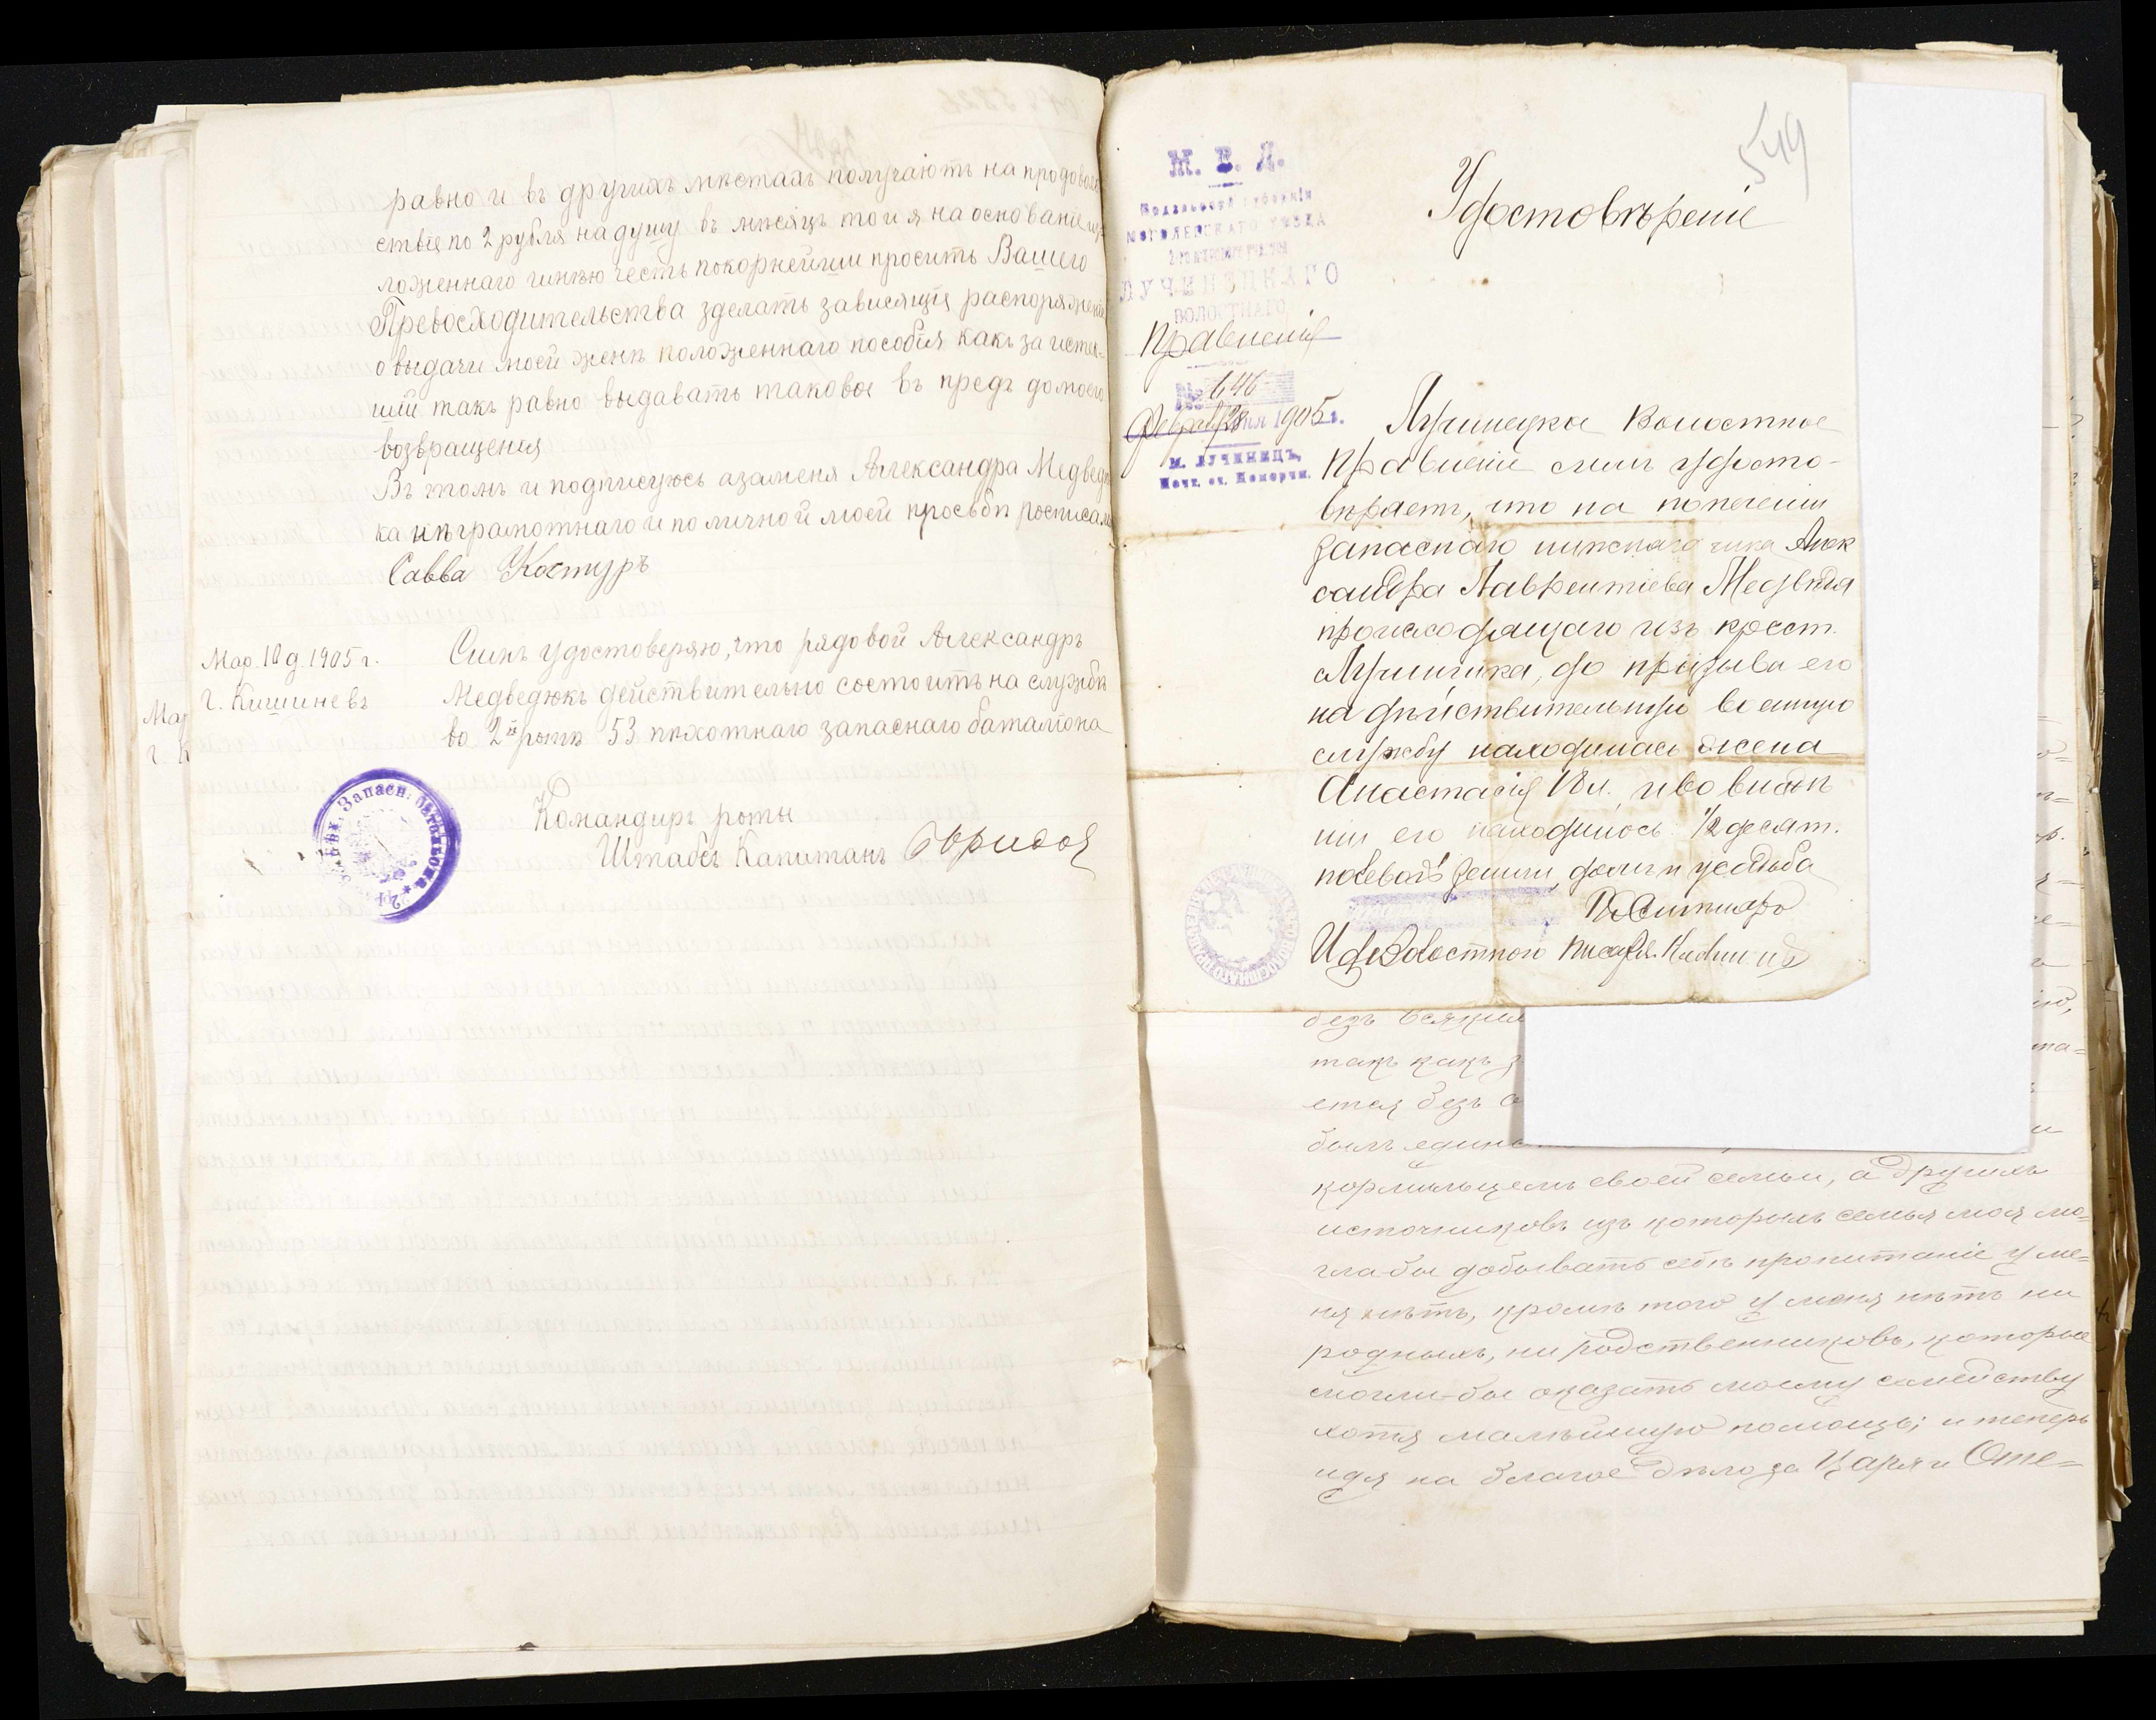 равно и въ другихъ мѣстахъ получаютъ на продоволь
ствіе по 2 рубля на душу въ мѣсяцъ то и я на основаніе из
ложеннаго имѣю честь покорнейши просить Вашего
Превосходительства зделать зависящія распоряженіе
о выдачи моей женѣ положеннаго пособія какъ за истек-
шій такъ равно выдавать таковое въ предъ до моего
возвращенія
Въ томъ и подписуюсь азаменя Александра Медведю
ка неграмотнаго и по личной моей просьбѣ росписался
Савва Костуръ
Мар. 10 д. 1905 г.
г. Кишиневъ
Симъ удостоверяю, что рядовой Александръ
Медведюкъ действительно состоитъ на службѣ
во 2й ротѣ 53 пѣхотнаго запаснаго баталіона
Мар
г. К
Командиръ роты
Штабсъ Капитанъ
Запасн. баталіона
549
М. В. Д.
Подольской губерніи
МОГИЛЕВСКАГО УѢЗДА
ЛУЧИНЕЦКАГО
ВОЛОСТНАГО
Правленія
№ 646
Февраля 28 дня 1905 г.
м. ЛУЧИНЕЦЪ,
Почт. ст. Копорчи.
Удостовѣреніе
Лучинецкое Волостное
Правленіе симъ удосто-
вѣряетъ, что на попеченіи
запаснаго нижняго чина Алек
сандра Лаврентіева Медвѣдя
происходящаго изъ крест.
Лучинчика, до призыва его
на дѣйствительную военную
службу находилась жена
Анастасія 18 л. и во владѣ
ніи его находилось 1/2 десят.
посевной земли, домъ и усадьба
И. д. Волостного Писаря
безъ всякихъ
такъ какъ з
ется безъ
былъ единс
кормильцемъ своей семьи, а другихъ
источниковъ изъ которыхъ семья моя мо=
гла-бы добывать себѣ пропитаніе у ме=
ня нѣтъ, кромѣ того у меня нѣтъ ни
родныхъ, ни родственниковъ, которые
могли-бы оказать моему семейству
хотя малѣйшую помощь; и теперь
идя на благое дѣло за Царя и Оте=